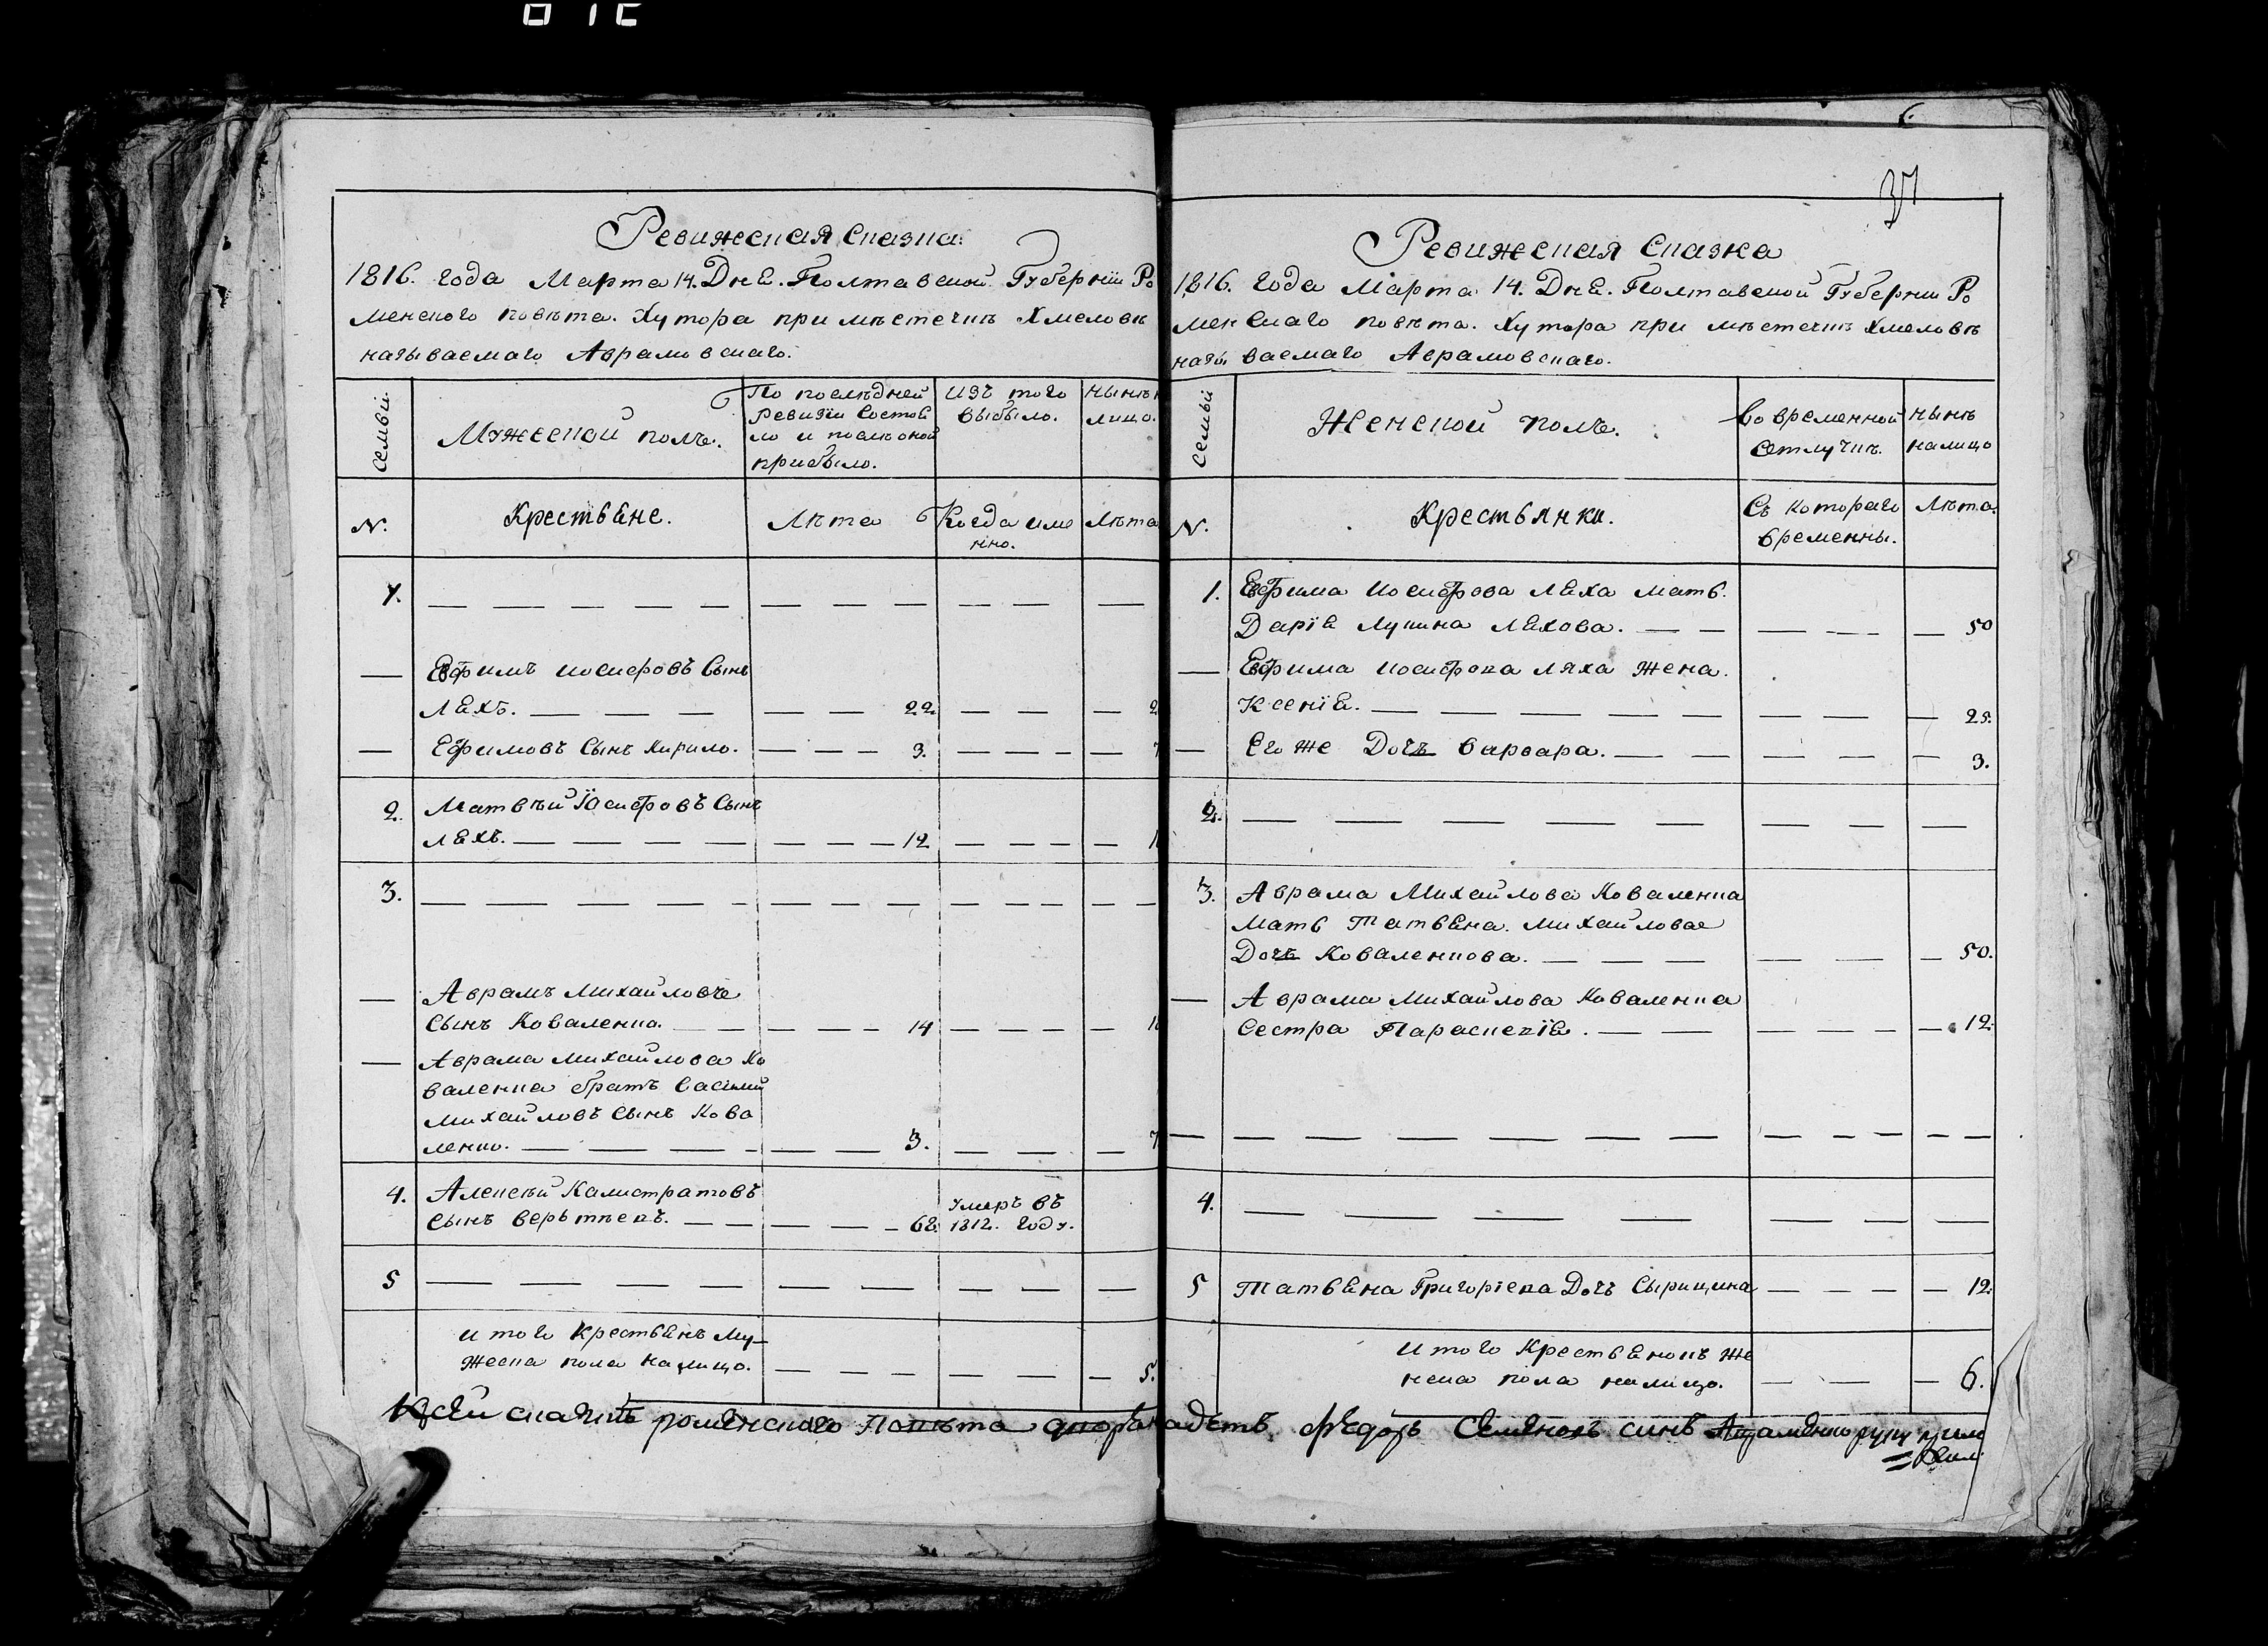 37
Ревижская Сказка.
1816. года Марта 14. Дня. Полтавской Губернїи Ро
менского повѣта. Хутора при мѣстечкѣ Хмеловѣ
называемаго Аврамовскаго.
Семьи.
Мужеской полъ.
По послѣдней
Ревизїи состоя
ло и послѣ оной
прибыло.
Изъ того
выбыло.
Нынѣ
лицо.
N.
Крестьяне.
Лѣта
Когда име
нно.
Лѣта
1.
— Ефимъ Иосифовъ Сынъ
Ляхъ. 22.
— Ефимовъ Сынъ Кирило. 3.
2. Матвѣй Іосифовъ Сынъ
Ляхъ. 12
3.
— Аврамъ Михайловъ
Сынъ Коваленко. 14
— Аврама Михайлова Ко
валенка братъ Василий
Михайловъ Сынъ Кова
ленко. 3.
4. Алексѣй Калистратовъ
Сынъ 62. Умеръ въ
1812. году.
5
Итого Крестьянъ Му-
жеска пола налицо. 5.
Ревижская Сказка
1816. года Марта 14. Дня. Полтавской Губернии Ро
менскаго повѣта. Хутора при мѣстечкѣ Хмеловѣ
называемаго Аврамовскаго.
Семьи
Женской полъ.
Во временной
отлучкѣ.
Нынѣ
налицо
N.
Крестьянки.
Съ котораго
времены.
Лѣта.
1. Ефима Иосифова Ляха мать.
Дарїя Лукина Ляхова. 50
— Ефима Иосифова Ляха жена.
Ксенїя. 25.
— Его же Дочъ Варвара. 3.
2.
3. Аврама Михайлова Коваленка
Мать Татьяна Михайлова
Дочъ Коваленкова. 50.
— Аврама Михайлова Коваленка
Сестра Параскевїя. 12.
4.
5 Татьяна Григорїева Дочъ 12.
Итого Крестьянокъ Же
нска пола налицо. 6.
сказкѣ роменского повѣта Федоръ Семяновъ синъ